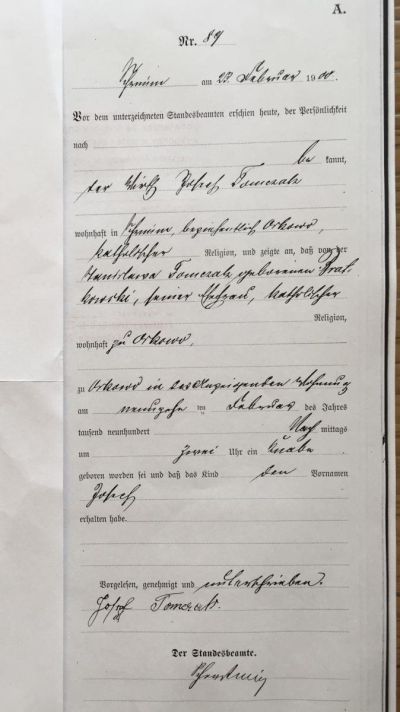 A.
Nr. 89
Schrimm am 23. Februar 1900.
Vor dem unterzeichneten Standesbeamten erschien heute, der Persönlichkeit
nach
be kannt,
der Wirth Josef Tomczak
wohnhaft in Schrimm, Orkowo,
katholischer Religion, und zeigte an, daß von der
Stanislawa Tomczak geborenen
seiner Ehefrau, katholischer
Religion,
wohnhaft zu Orkowo,
zu Orkowo in des Anzeigenden Wohnung
am neunzehn ten Februar des Jahres
tausend neunhundert Nach mittags
um zwei Uhr ein Knabe
geboren worden sei und daß das Kind den Vornamen
Josef
erhalten habe.
Vorgelesen, genehmigt und unterschrieben.
Josef Tomczak.
Der Standesbeamte.